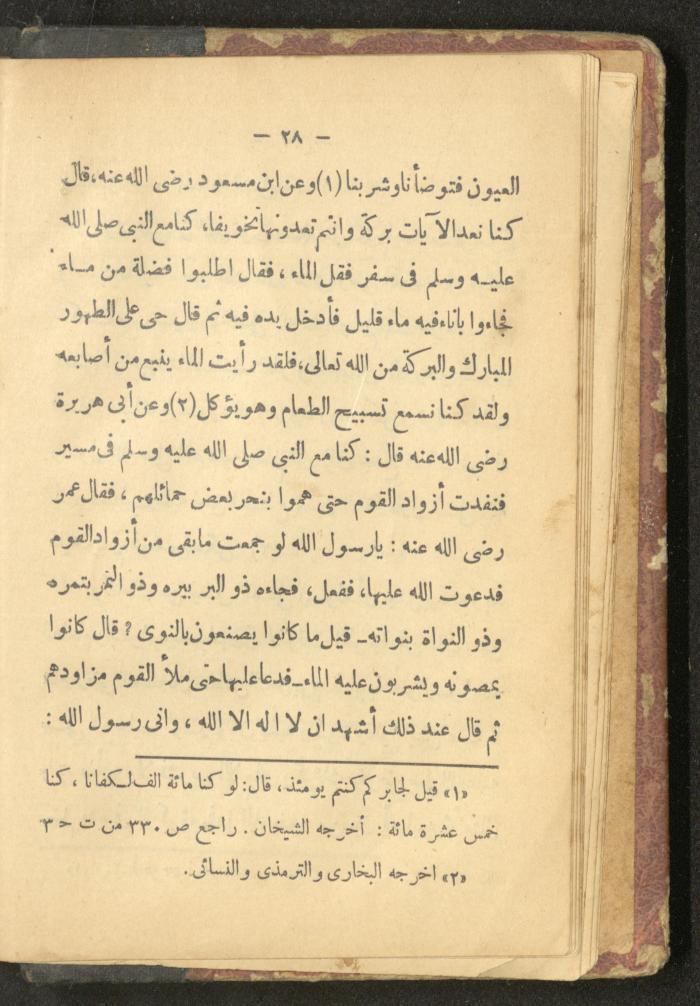 — ٢٨ —
العيون فتوضأنا وشربنا (١) وعن ابن مسعود رضى الله عنه، قال
كنا نعد الآيات بركة وانتم تعدونها تخويفا، كنا مع النبى صلى الله
عليه وسلم فى سفر فقل الماء ، فقال اطلبوا فضلة من ماء
فجاءوا باناء فيه ماء قليل فأدخل يده فيه ثم قال حى على الطهور
المبارك والبركة من الله تعالى، فلقد رأيت الماء ينبع من أصابعه
ولقد كنا نسمع تسبيح الطعام وهو يؤكل (٢) وعن أبى هريرة
رضى الله عنه قال : كنا مع النبى صلى الله عليه وسلم فى مسير
فنفدت أزواد القوم حتى هموا بنحر بعض حمائلهم ، فقال عمر
رضى الله عنه : يارسول الله لو جمعت مابقى من أزواد القوم
فدعوت الله عليها، ففعل، فجاءه ذو البر ببره وذو التمر بتمره
وذو النواة بنواته ــ قيل ما كانوا يصنعون بالنوى ؟ قال كانوا
يمصونه ويشربون عليه الماء ــ فدعا عليها حتى ملأ القوم مزاودهم
ثم قال عند ذلك أشهد ان لا اله الا الله ، وانى رسول الله :
«١» قيل لجابر كم كنتم يومئذ ، قال : لو كنا مائة الف لكفانا ، كنا
خمس عشرة مائة : أخرجه الشيخان . راجع ص ٣٣٠ من ت ح ٣
«٢» اخرجه البخارى والترمذى والنسائى .